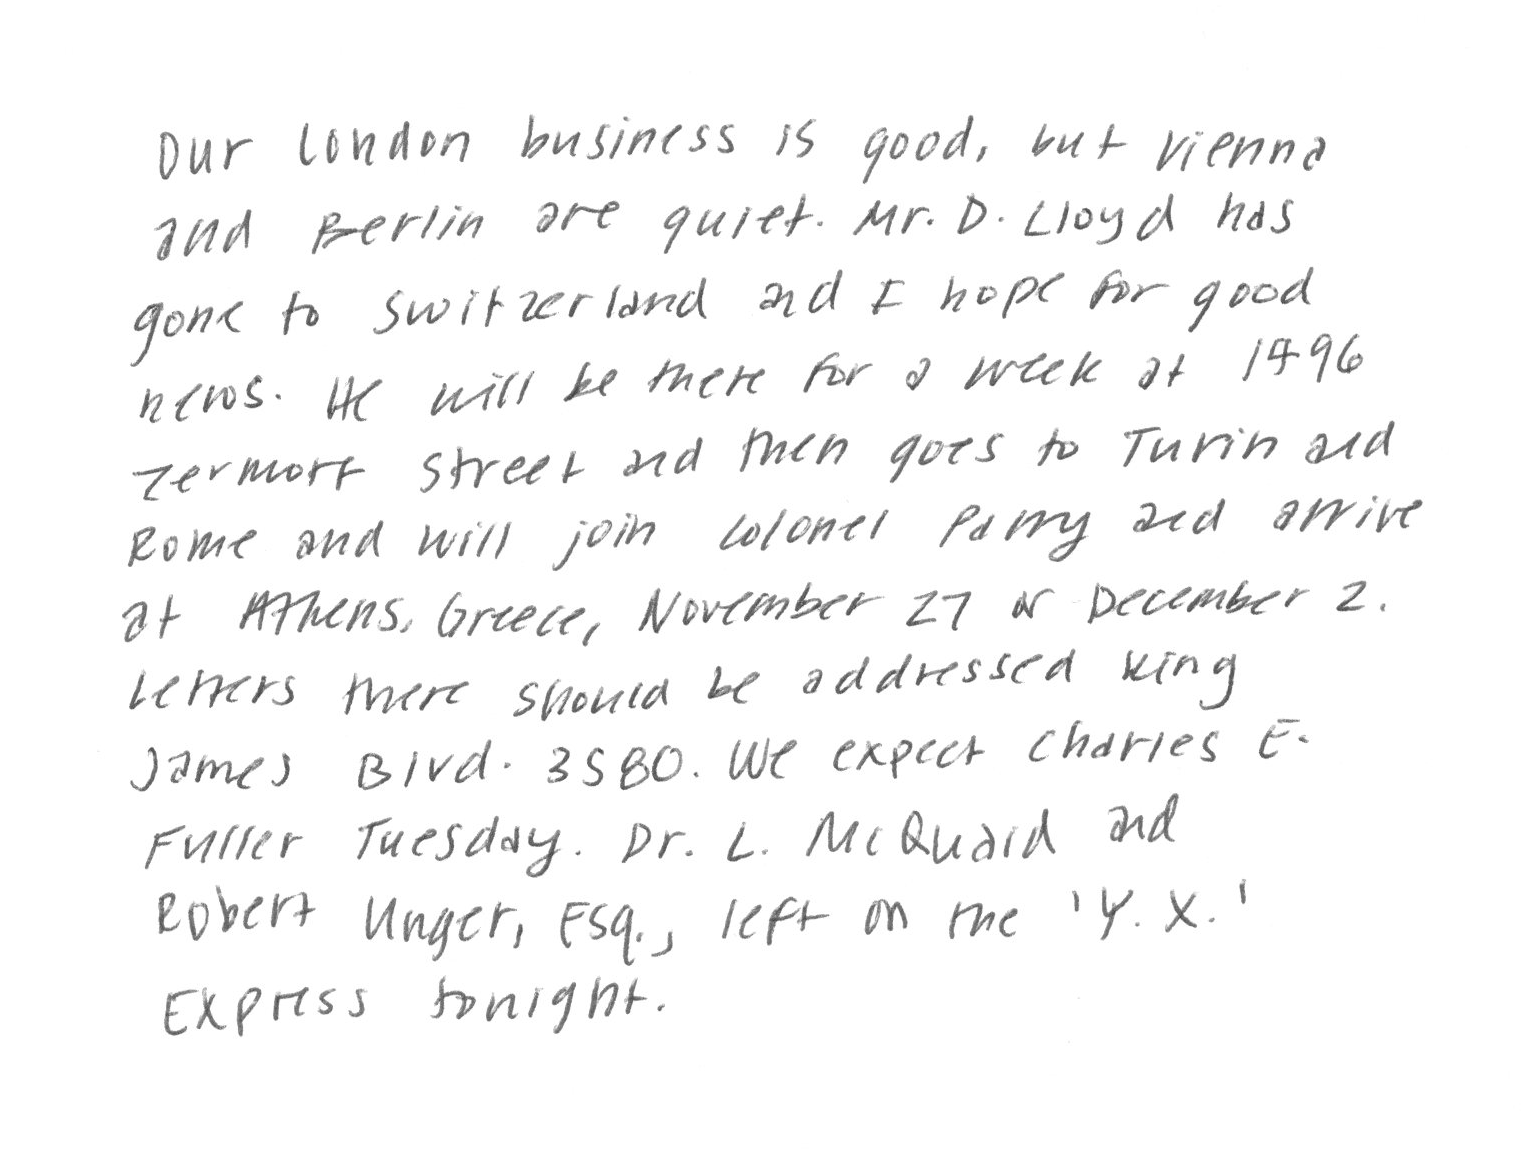 Our London business is good, but Vienna
and Berlin are quiet. Mr. D. Lloyd has
gone to Switzerland and I hope for good
news. He will be there for a week at 1496
Zermott Street and then goes to Turin and
Rome and will join Colonel Parry and arrive
at Athens, Greece, November 27 or December 2.
Letters there should be addressed King
James Blvd. 3580. We expect Charles E.
Fuller Tuesday. Dr. L. McQuaid and
Robert Unger, Esq., left on the 'Y.X.'
Express tonight.